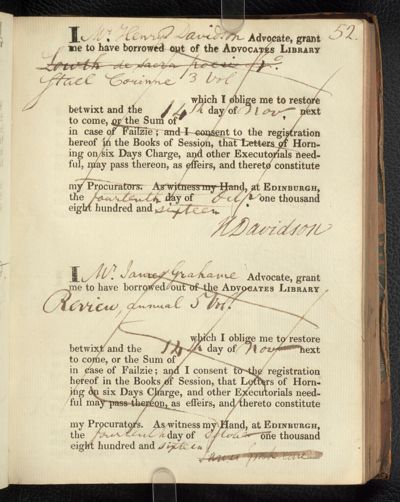 52.
I Mr. Henry Davidson Advocate, grant
me to have borrowed out of the ADVOCATES LIBRARY
Lowth de sacra poesi &c
Stael Corinne 3 Vol
which I oblige me to restore
betwixt and the 14th day of Nov. next
to come, or the Sum of
in case of Failzie; and I consent to the registration
hereof in the Books of Session, that Letters of Horn-
ing on six Days Charge, and other Executorials need-
ful, may pass thereon, as effeirs, and thereto constitute
my Procurators. As witness my Hand, at EDINBURGH,
the fourteenth day of one thousand
eight hundred and sixteen
H Davidson
I Mr. James Grahame Advocate, grant
me to have borrowed out of the ADVOCATES LIBRARY
Review, annual 5 Vol.
which I oblige me to restore
betwixt and the 14th day of Nov next
to come, or the Sum of
in case of Failzie; and I consent to the registration
hereof in the Books of Session, that Letters of Horn-
ing on six Days Charge, and other Executorials need-
ful may pass thereon, as effeirs, and thereto constitute
my Procurators. As witness my Hand, at EDINBURGH,
the fourteenth day of October one thousand
eight hundred and sixteen
James Grahame